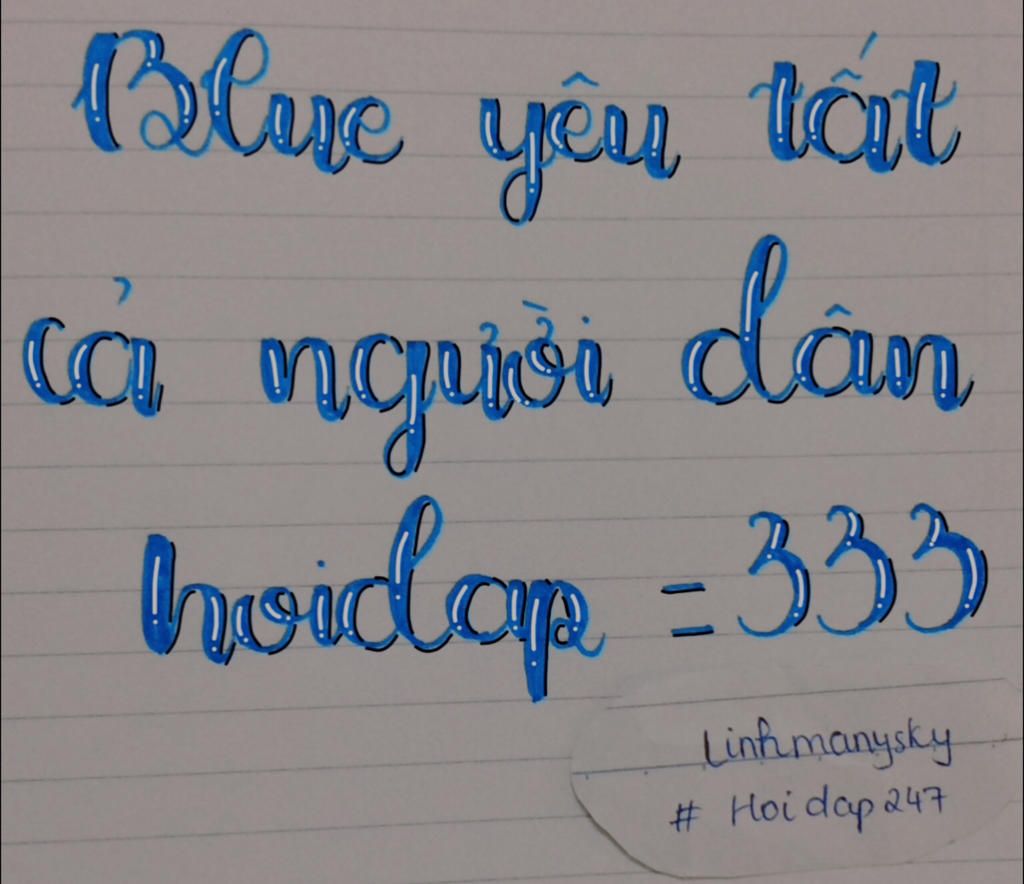 Blue yêu tất
cả người dân
hoidap =333
Linhmanysky
# Hoidap247